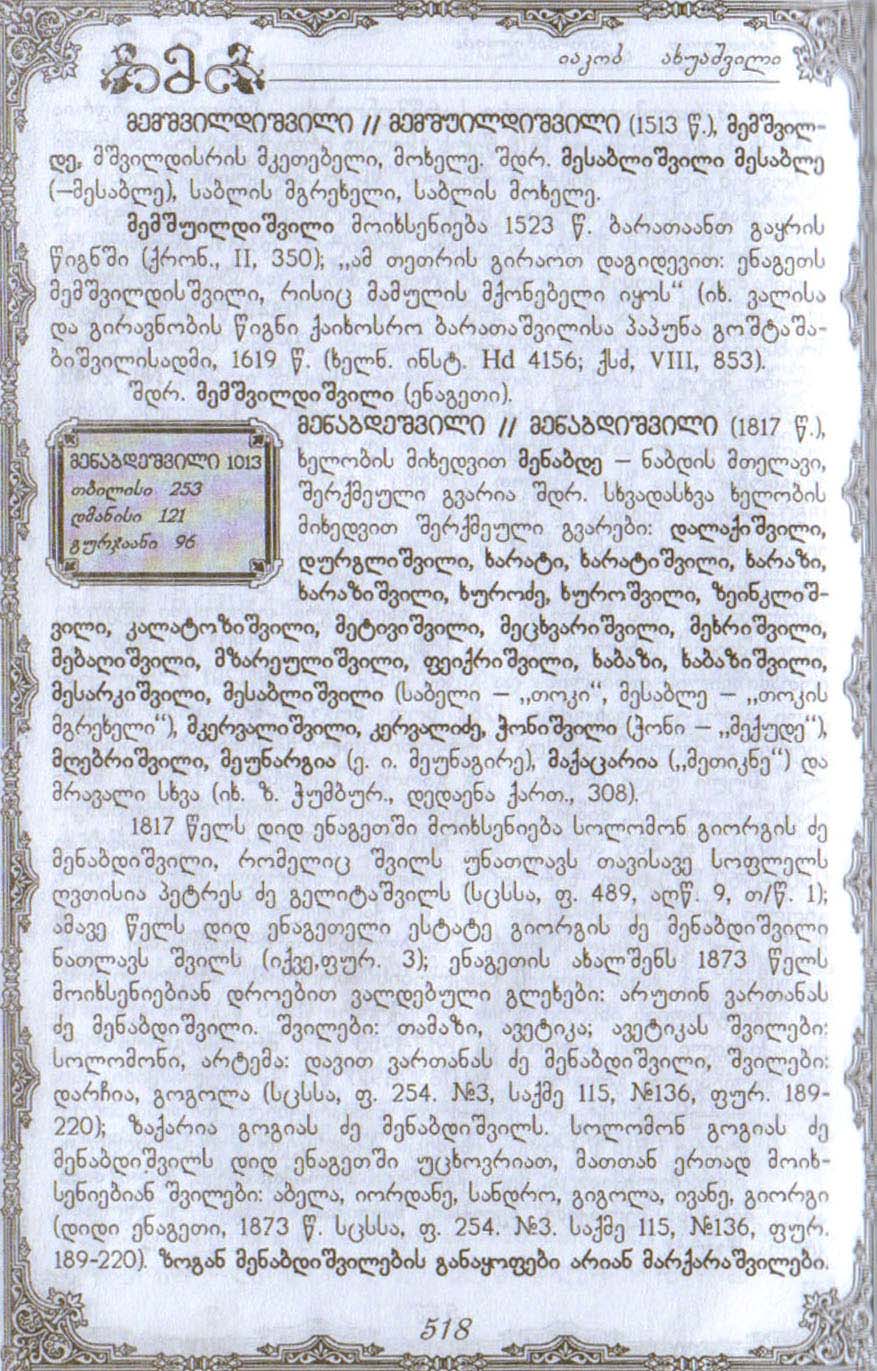 მ
იაკობ ახუაშვილი
მემშვილდიშვილი // მემშუილდიშვილი (1513 წ.), მემშვილ-
დე, მშვილდისრის მკეთებელი, მოხელე. შდრ. მესაბლიშვილი მესაბლე
(—მესაბლე), საბლის მგრეხელი, საბლის მოხელე.
მემშუილდიშვილი მოიხსენიება 1523 წ. ბარათაანთ გაყრის
წიგნში (ქრონ., II, 350); „ამ თეთრის გირაოთ დაგიდევით: ენაგეთს
მემშვილდისშვილი, რისიც მამულის მქონებელი იყოს“ (იხ. ვალისა
და გირავნობის წიგნი ქაიხოსრო ბარათაშვილისა პაპუნა გოშტაშა-
ბიშვილისადმი, 1619 წ. (ხელნ. ინსტ. Hd 4156; ქსძ, VIII, 853).
შდრ. მემშვილდიშვილი (ენაგეთი).
მენაბდეშვილი // მენაბდიშვილი (1817 წ.),
ხელობის მიხედვით მენაბდე — ნაბდის მთელავი,
შერქმეული გვარია შდრ. სხვადასხვა ხელობის
მიხედვით შერქმეული გვარები: დალაქიშვილი,
დურგლიშვილი, ხარატი, ხარატიშვილი, ხარაზი,
ხარაზიშვილი, ხუროძე, ხუროშვილი, ზეინკლიშ-
მენაბდეშვილი 1013
თბილისი 253
დმანისი 121
გურჯაანი 96
ვილი, კალატოზიშვილი, მეტივიშვილი, მეცხვარიშვილი, მეხრიშვილი,
მებაღიშვილი, მზარეულიშვილი, ფეიქრიშვილი, ხაბაზი, ხაბაზიშვილი,
მესარკიშვილი, მესაბლიშვილი (საბელი — „თოკი“, მესაბლე — „თოკის
მგრეხელი“), მკერვალიშვილი, კერვალიძე, ჭონიშვილი (ჭონი — „მექუდე“),
მღებრიშვილი, მეუნარგია (ე. ი. მეუნაგირე), მაქაცარია („მეთიკნე“) და
მრავალი სხვა (იხ. ზ. ჭუმბურ., დედაენა ქართ., 308).
1817 წელს დიდ ენაგეთში მოიხსენიება სოლომონ გიორგის ძე
მენაბდიშვილი, რომელიც შვილს უნათლავს თავისავე სოფლელს
ღვთისია პეტრეს ძე გელიტაშვილს (სცსსა, ფ. 489, აღწ. 9, თ/წ. 1);
ამავე წელს დიდ ენაგეთელი ესტატე გიორგის ძე მენაბდიშვილი
ნათლავს შვილს (იქვე,ფურ. 3); ენაგეთის ახალშენს 1873 წელს
მოიხსენიებიან დროებით ვალდებული გლეხები: არუთინ ვართანას
ძე მენაბდიშვილი. შვილები: თამაზი, ავეტიკა; ავეტიკას შვილები:
სოლომონი, არტემა: დავით ვართანას ძე მენაბდიშვილი, შვილები:
დარჩია, გოგოლა (სცსსა, ფ. 254. №3, საქმე 115, №136, ფურ. 189-
220); ზაქარია გოგიას ძე მენაბდიშვილს. სოლომონ გოგიას ძე
მენაბდიშვილს დიდ ენაგეთში უცხოვრიათ, მათთან ერთად მოიხ-
სენიებიან შვილები: აბელა, იორდანე, სანდრო, გიგოლა, ივანე, გიორგი
(დიდი ენაგეთი, 1873 წ. სცსსა, ფ. 254. №3. საქმე 115, №136, ფურ.
189-220). ზოგან მენაბდიშვილების განაყოფები არიან მარქარაშვილები.
518